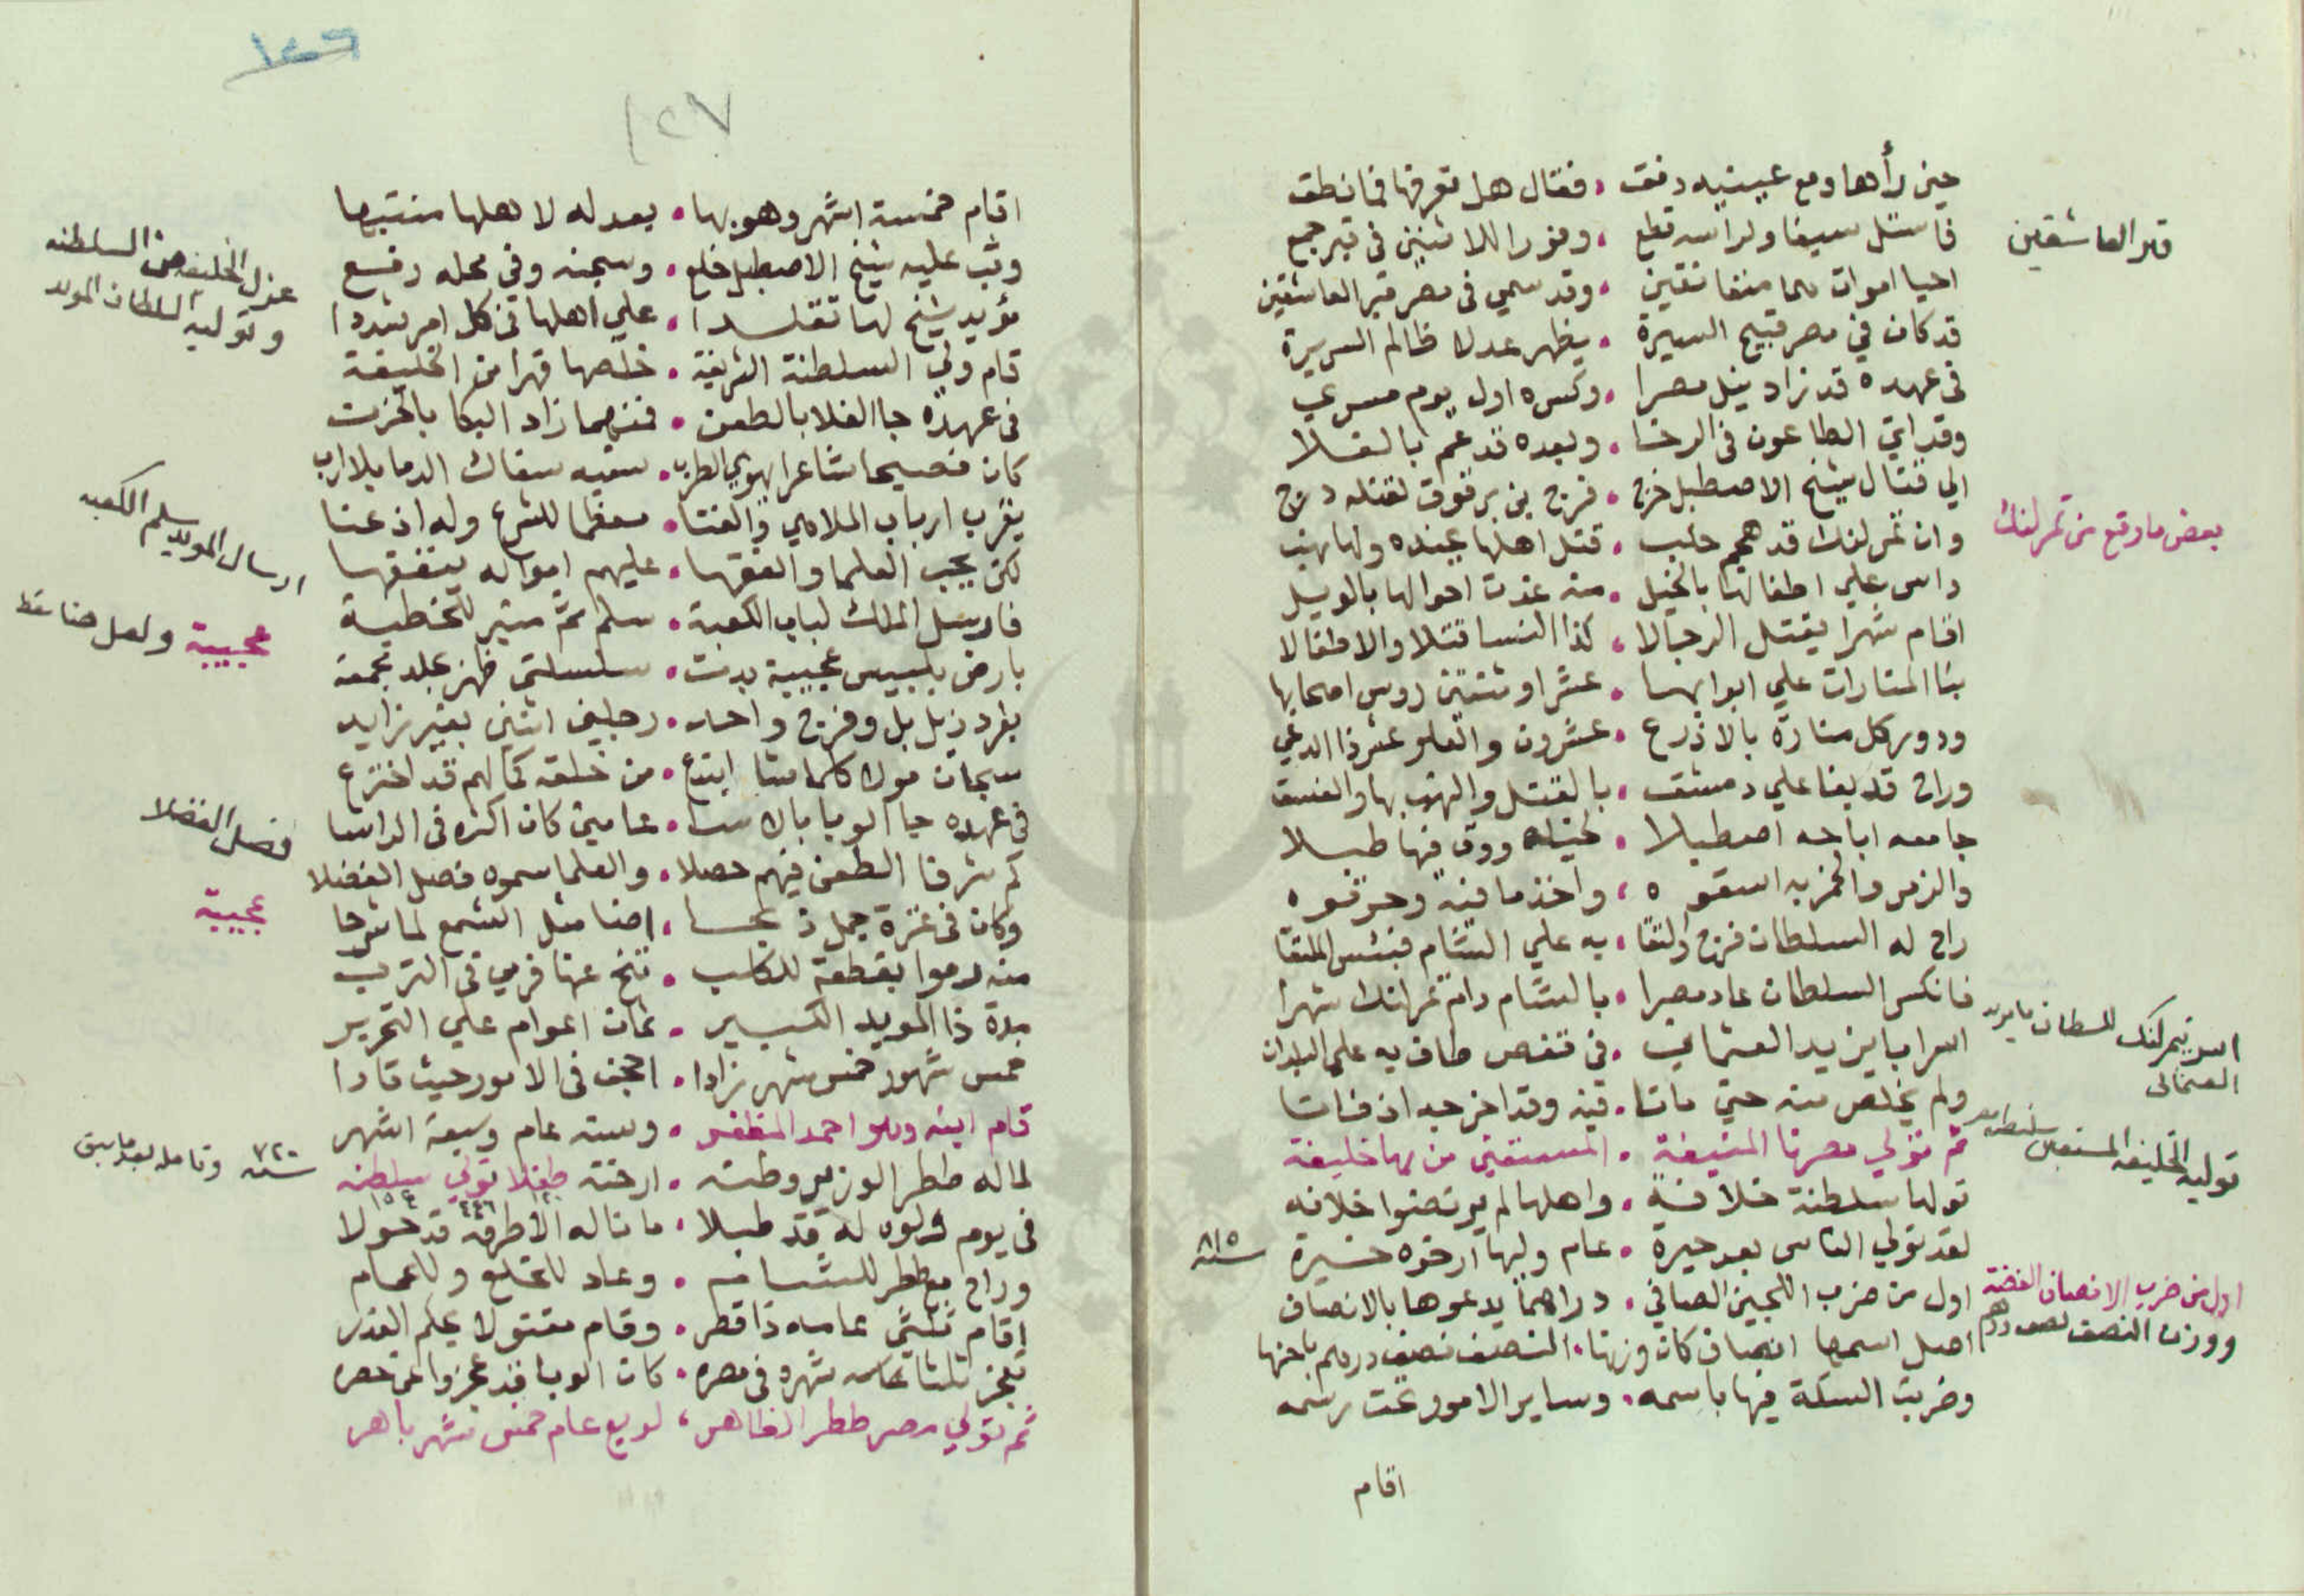 حين رأها دمع عينيه دفق . فقال هل تعرفها فما نطق
فاستل سيفا ولراسه قطع . وفورا للاثنين في قبر جمع
احيا اموات بما متعانقين . وقد سمي في مصر قبر العاشقين
قبر العاشقين
قد كان في مصر قبيح السيرة . يظهر عدلا ظالم السريرة
في عهده قد زاد نيل مصرا . وكسره اول يوم مسري
وقد اتي الطاعون في الرخا . وبعده قد عم بالغلا
الي قتال شيخ الاصطبل خرج . فرج بن برقوق لقتله درج
بعض ما وقع من تمرلنك
وان تمرلنك قد هجم حلب . قتل اهلها بجنده ولها نهب
داس علي اطفالها بالخيل . منه غدت احوالها بالويل
اقام شهرا يقتل الرجالا . كذا النسا قتلا والاطفالا
بنا المنارات علي ابوابها . عشرا وثنتين روس اصحابها
ودور كل منارة بالاذرع . عشرون والعلو عشر ذا الدعي
وراح قد بغا علي دمشق . بالقتل والنهب بها والفسق
جامعه اباحه اصطبلا . لخيله ودق فيها طبلا
والزمر والخمر به اسقوه ، واخذ ما فيه وحرقوه
راح له السلطان فرج والتقا . به علي الشام فبئس الملتقا
فانكسر السلطان عاد مصرا . بالشام دام تمرلنك شهرا
اسر تيمرلنك للسطان بايزيد
العثمانى
اسر ابا يزيد العثماني . في قفص طاف به علي البلدان
ولم يخلص منه حتي ماتا . فيه وقد اخرجه اذ فاتا
ثم تولي مصرنا المنيفة . المستعين من بها خليفة
توليه الخليفه المستعين سلطنه
تولها سلطنة خلافة . واهلها لم يرتضوا خلافه
لقد تولي الناس بعد حيرة . عام وليها ارخوه خيرة
سنة ٨١٥
اول من ضرب الانصاف الفضة
اول من ضرب اللجين الصافي . دراهما يدعوها بالانصاف
ووزن النصف نصف درهم
اصل اسمها انصاف كان وزنها . النصف نصف درهم
وضربت السكة فيها باسمه . وساير الامور تحت رسمه
اقام
١٤٦
١٢٧
اقام خمسة اشهر وهو بها . بعدله لاهلها منتبها
عزل الخليفه من السلطنه
وتوليه السلطان المويد
وثب عليه شيخ الاصطبل خلع . وسجنه وفي محله رفع
مؤيد شيخ لها تقلدا . علي اهلها في كل امر شددا
قام ولي السلطنة الشريفة . خلصها قهرا من الخليفة
في عهده جا الغلا بالطعن . فمنهما زاد البكا بالحزن
كان فصيحا شاعرا يهوي الطرب . سفيه سفاك الدما بلا ارب
ارسال المويد سلم للكعبه
يقرب ارباب الملاهي والغنا . معظما للشرع وله اذعنا
لكن يحب العلما والفقها . عليهم امواله ينفقها
فارسل الملك لباب الكعبة . سلم ثم منبر للخطبة
عجيبة ولعل هنا سقط
بارض بلبيس عجيبة بدت . سلسلتي ظهر بجلد جمعة
بفرد ذيل بل وفرج واحد . رجلين اثنين بغير زايد
سبحان مولا كلما شا ابتدع . من خلقه كما لهم قد اخترع
فصل الفضلا
في عهده جا الوبا بالاسا . عامين كان اكثره في الراسا
كم شرفا الطعن فيهم حصلا . والعلما سموه فصل الفضلا
عجيبة
وكان في غزة جمل ذبحا ، اضا مثل الشمع لما شرحا
منه رموا بقطعة للكلب . تنح عنها فرمي في الترب
مدة ذا المويد الكبير . ثمان اعوام علي التحرير
خمس شهور خمس شهر زادا . اجحف في الامور حيث قادا
قام ابنه وهو احمد المظفر . وسنه عام وسبعة اشهر
سنة ٧٢٠ وتامله بعد مابين
لما له ططر الوزير وطنه . ارخته طفلا تولي سلطنه
١٢٠ ٤٤٦ ١٥٤
في يوم ولوه له قد طبلا . ما ناله الاطرقه قد حولا
وراح مع ططر للشام . وعاد للخلع وللحمام
اقام ثلثي عامه ذا قطر . وقام مقتولا بحكم القدر
كان الوبا قد عجزوا عن حصره
ثم تولي مصر ططر الظاهر ، لربع عام خمس شهر باهر